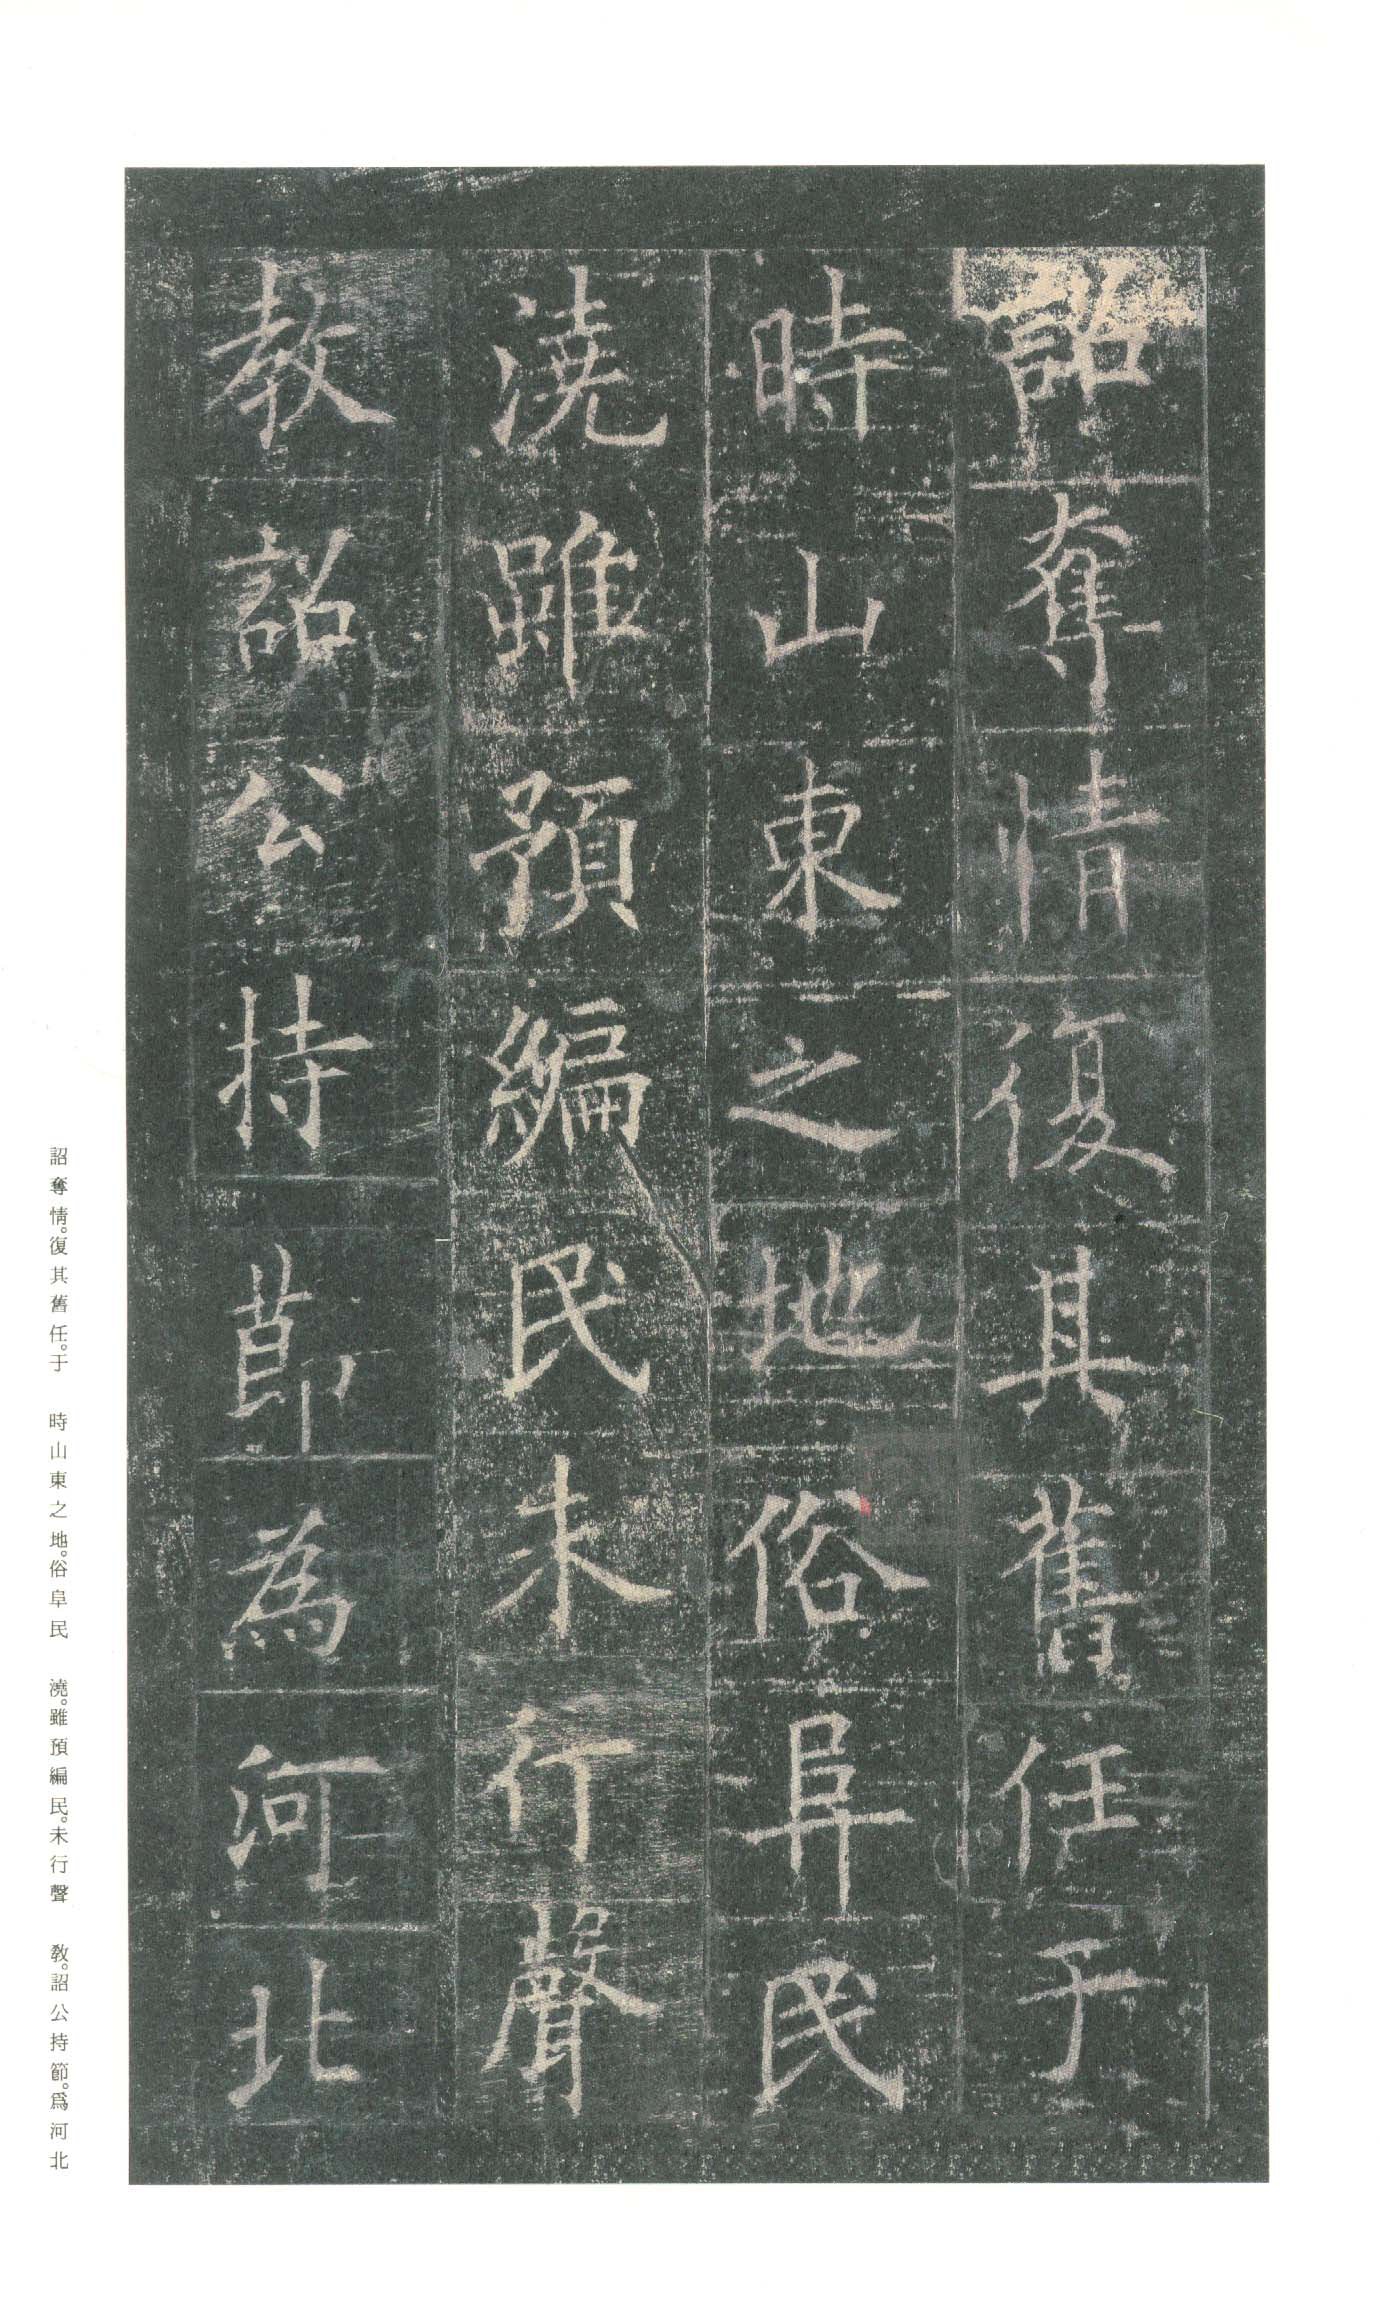 詔奪情復其舊任于
時山東之地俗阜民
澆雖預編民未行聲
教詔公持節為河北
詔奪情。復其舊任。于　時山東之地。俗阜民　澆。雖預編民。未行聲　教。詔公持節。爲河北